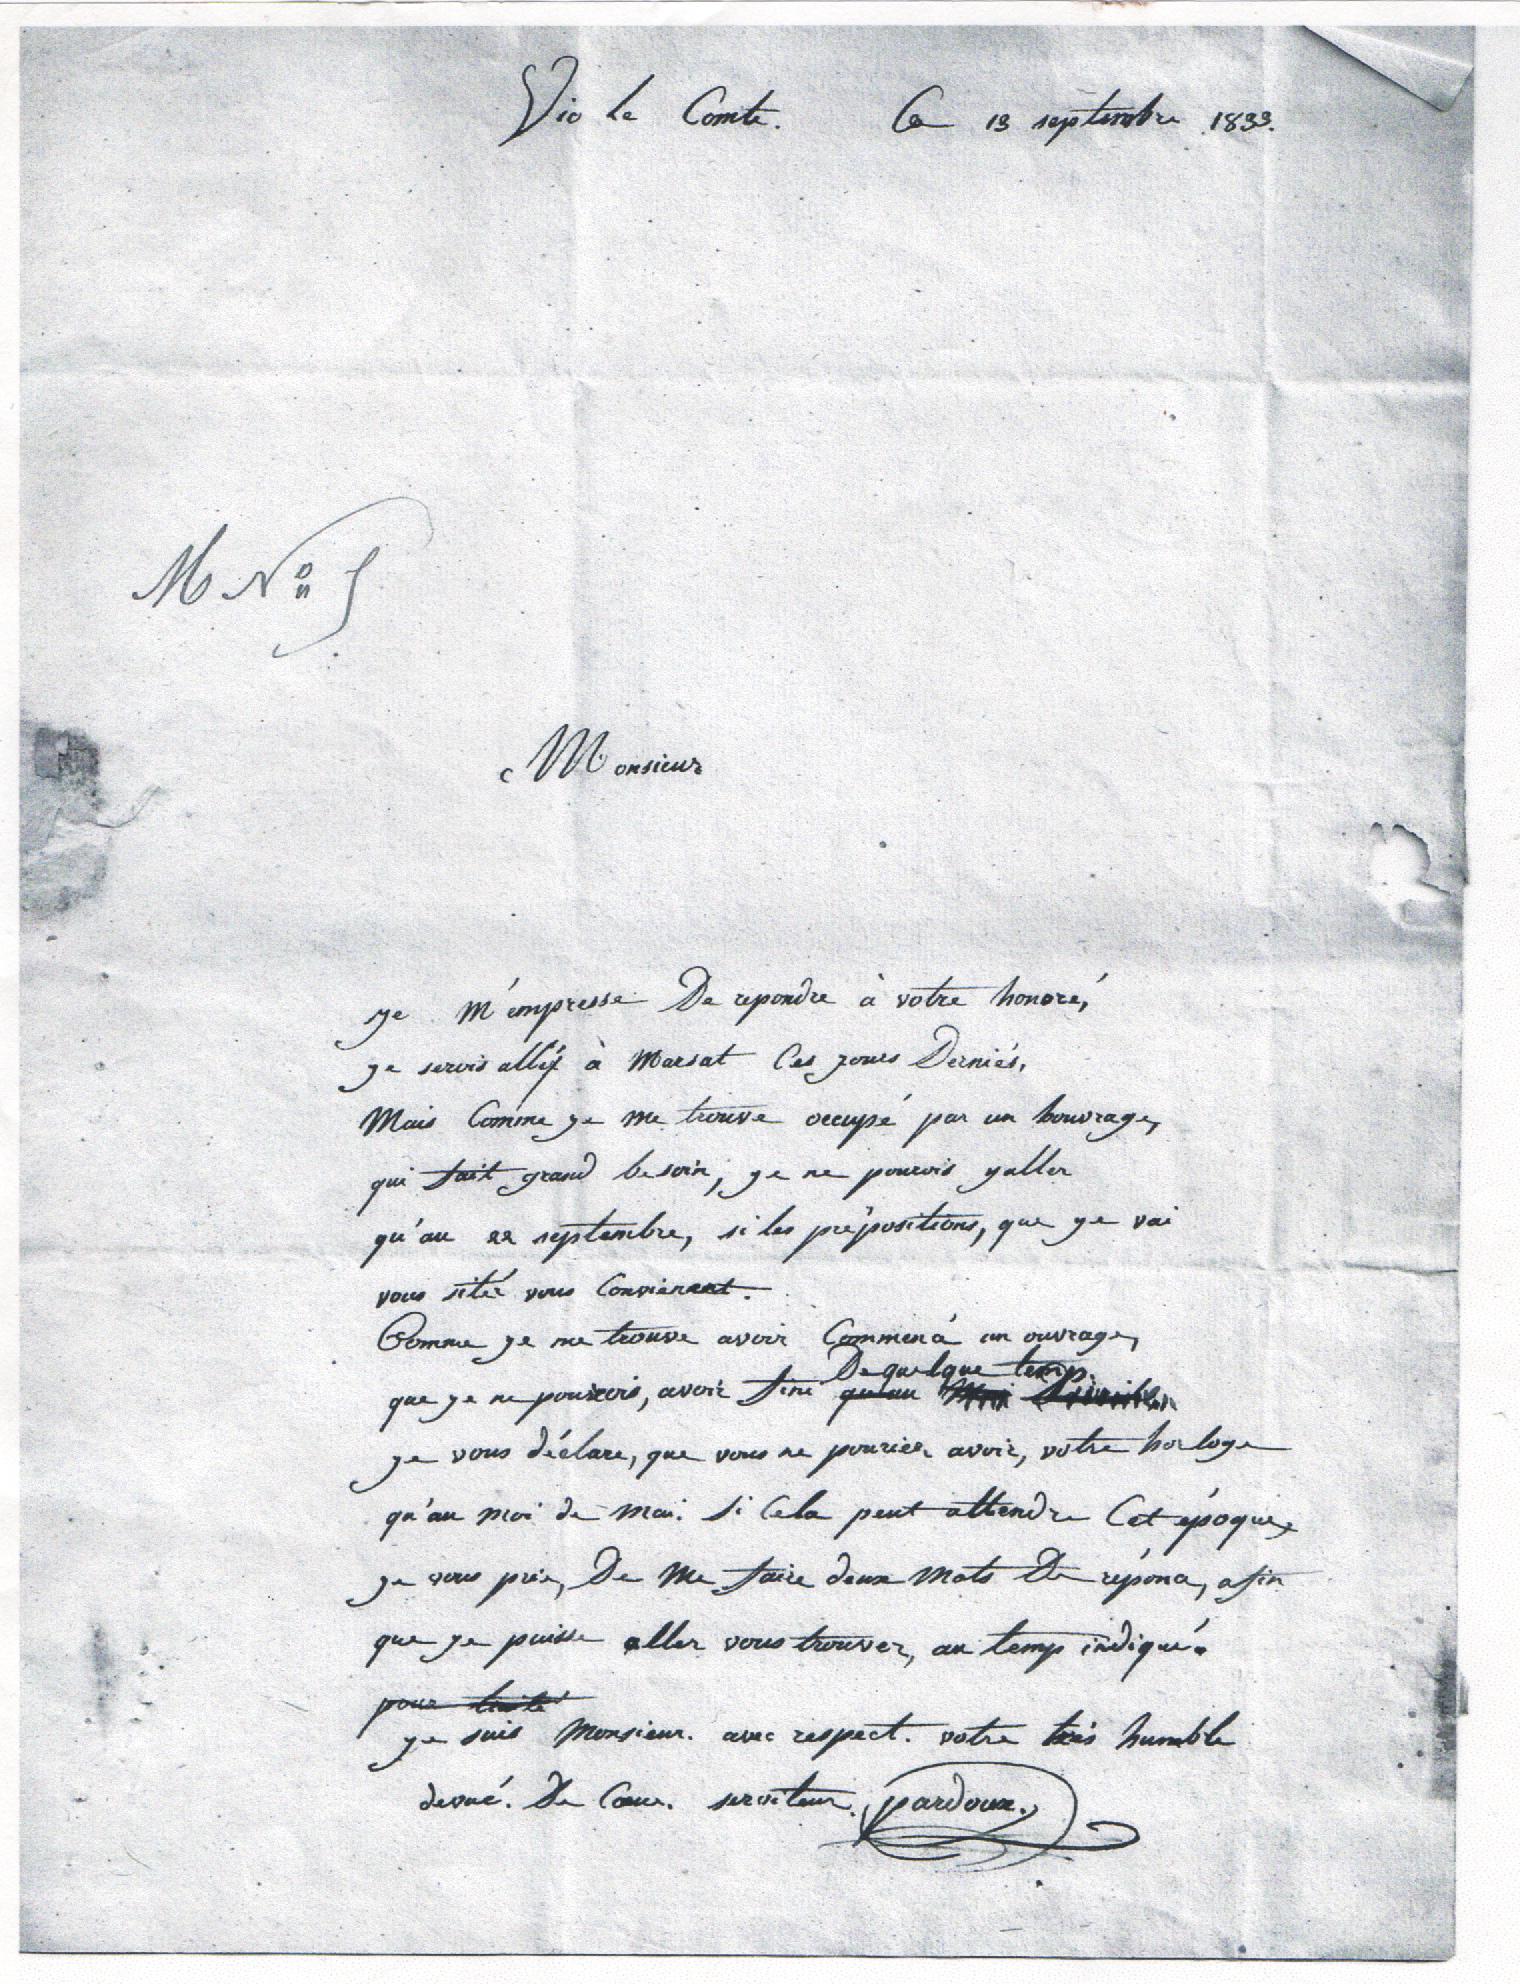 Vic le Comte. Ce 13 septembre 1833.
M N° 5
Monsieur
je m'empresse De repondre à votre honoré,
je serois allé à Marsat Ces jours Derniés,
Mais Comme je me trouve occupé par un houvrage,
qui fait grand besoin, je ne pourois yaller
qu'au 22 septembre, si les prépositions, que je vai
vous sité vous Convienent.
Comme je me trouve avoir Commencé un ouvrage,
De quelque temp
que je ne pourrois, avoir fini qu'au
je vous déclare, que vous ne pouriez avoir, votre horloge
qu'au moi de mai. si Cela peut attendre Cet époque,
je vous prie, De Me faire deux Mots De réponce, afin
que je puisse aller vous trouver, au temp indiqué.
pour traité
je suis Monsieur. avec respect. votre trés humble
devoué. De Cœur. serviteur. pardoux.